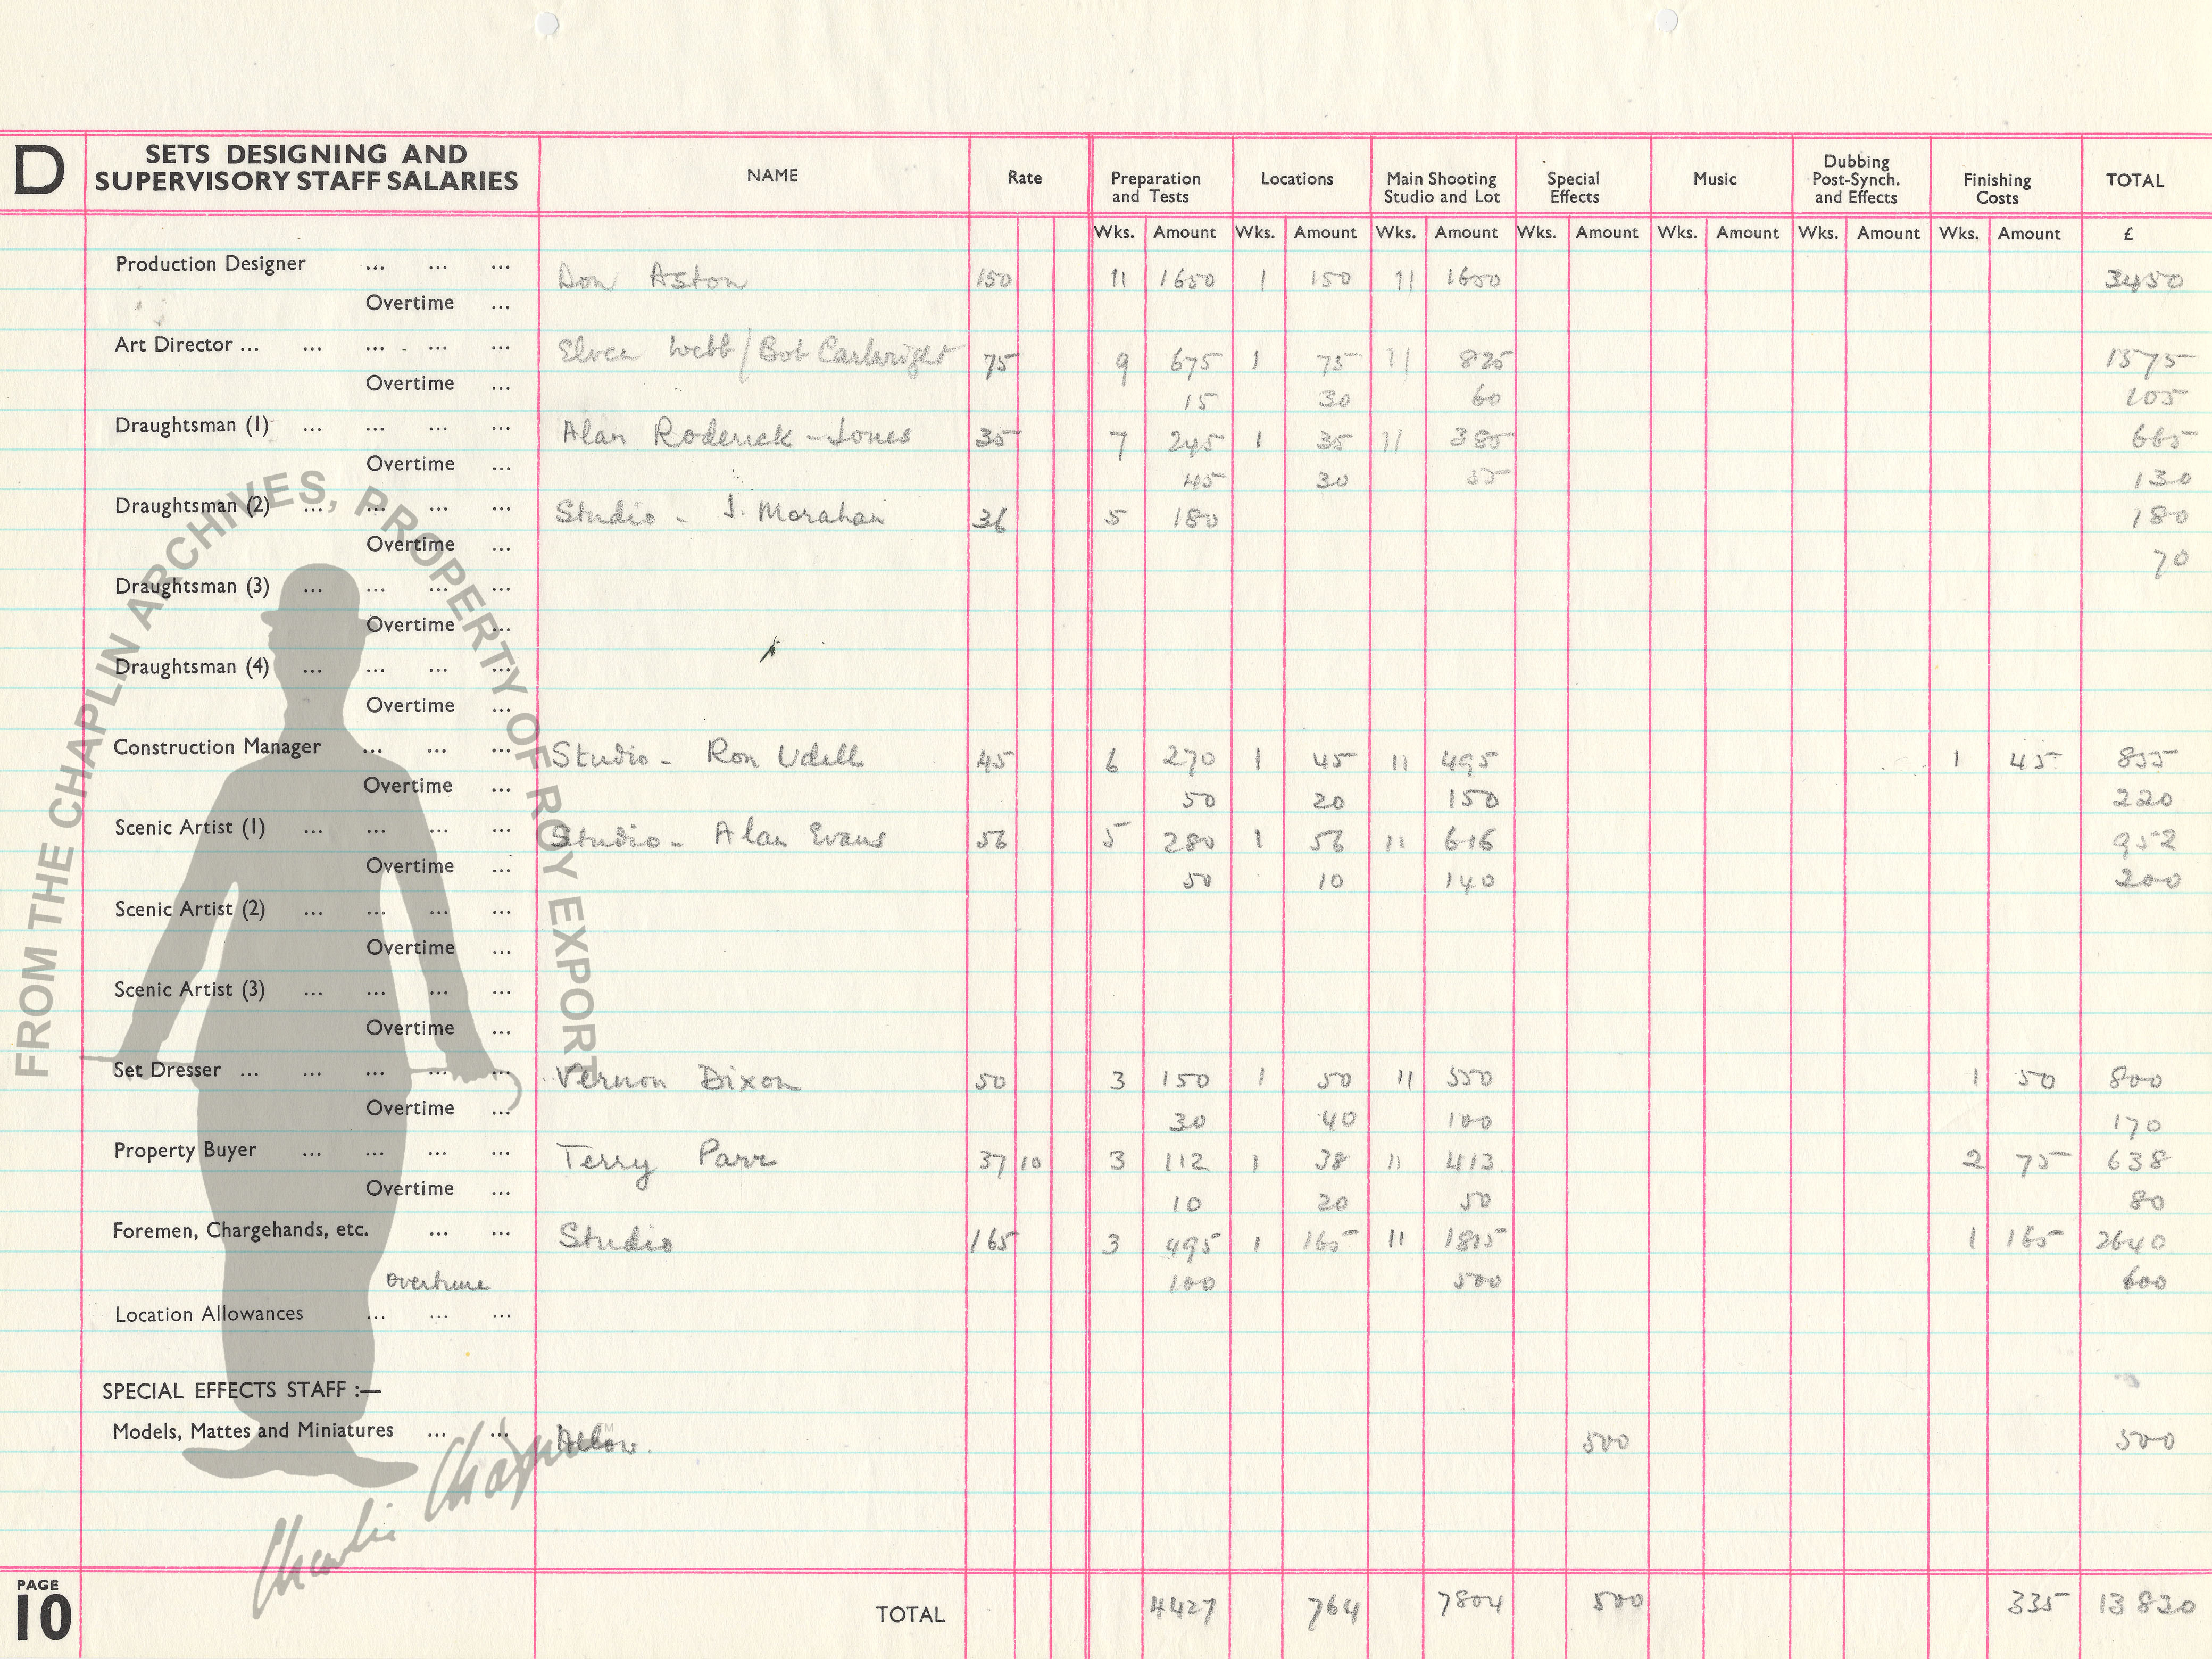 D SETS DESIGNING AND SUPERVISORY STAFF SALARIES NAME Rate Preparation and Tests Locations Main Shooting Studio and Lot Special Effects Music Dubbing Post-Synch. and Effects Finishing Costs TOTAL
Wks. Amount Wks. Amount Wks. Amount Wks. Amount Wks. Amount Wks. Amount Wks. Amount £
Production Designer ... ... ... Don Aston 150 11 1650 1 150 11 1650 3450
Overtime ...
Art Director ... ... ... ... ... Elven Webb / Bob Cartwright 75 9 675 1 75 11 825 1575
Overtime ... 15 30 60 105
Draughtsman (1) ... ... ... ... Alan Roderick-Jones 35 7 245 1 35 11 385 665
Overtime ... 45 30 55 130
Draughtsman (2) ... ... ... ... Studio - J. Morahan 36 5 180 180
Overtime ... 70
Draughtsman (3) ... ... ... ...
Overtime ...
Draughtsman (4) ... ... ... ...
Overtime ...
Construction Manager ... ... ... Studio - Ron Udell 45 6 270 1 45 11 495 1 45 855
Overtime ... 50 20 150 220
Scenic Artist (1) ... ... ... ... Studio - Alan Evans 56 5 280 1 56 11 616 952
Overtime ... 50 10 140 200
Scenic Artist (2) ... ... ... ...
Overtime ...
Scenic Artist (3) ... ... ... ...
Overtime ...
Set Dresser ... ... ... ... ... Vernon Dixon 50 3 150 1 50 11 550 1 50 800
Overtime ... 30 40 100 170
Property Buyer ... ... ... ... Terry Parr 37 10 3 112 1 38 11 413 2 75 638
Overtime ... 10 20 50 80
Foremen, Chargehands, etc. ... ... Studio 165 3 495 1 165 11 1815 1 165 2640
Overtime 100 500 600
Location Allowances ... ... ...
SPECIAL EFFECTS STAFF :—
Models, Mattes and Miniatures ... ... Allow. 500 500
PAGE 10 TOTAL 4427 764 7804 500 335 13830
FROM THE CHAPLIN ARCHIVES, PROPERTY OF ROY EXPORT
Charlie Chaplin TM